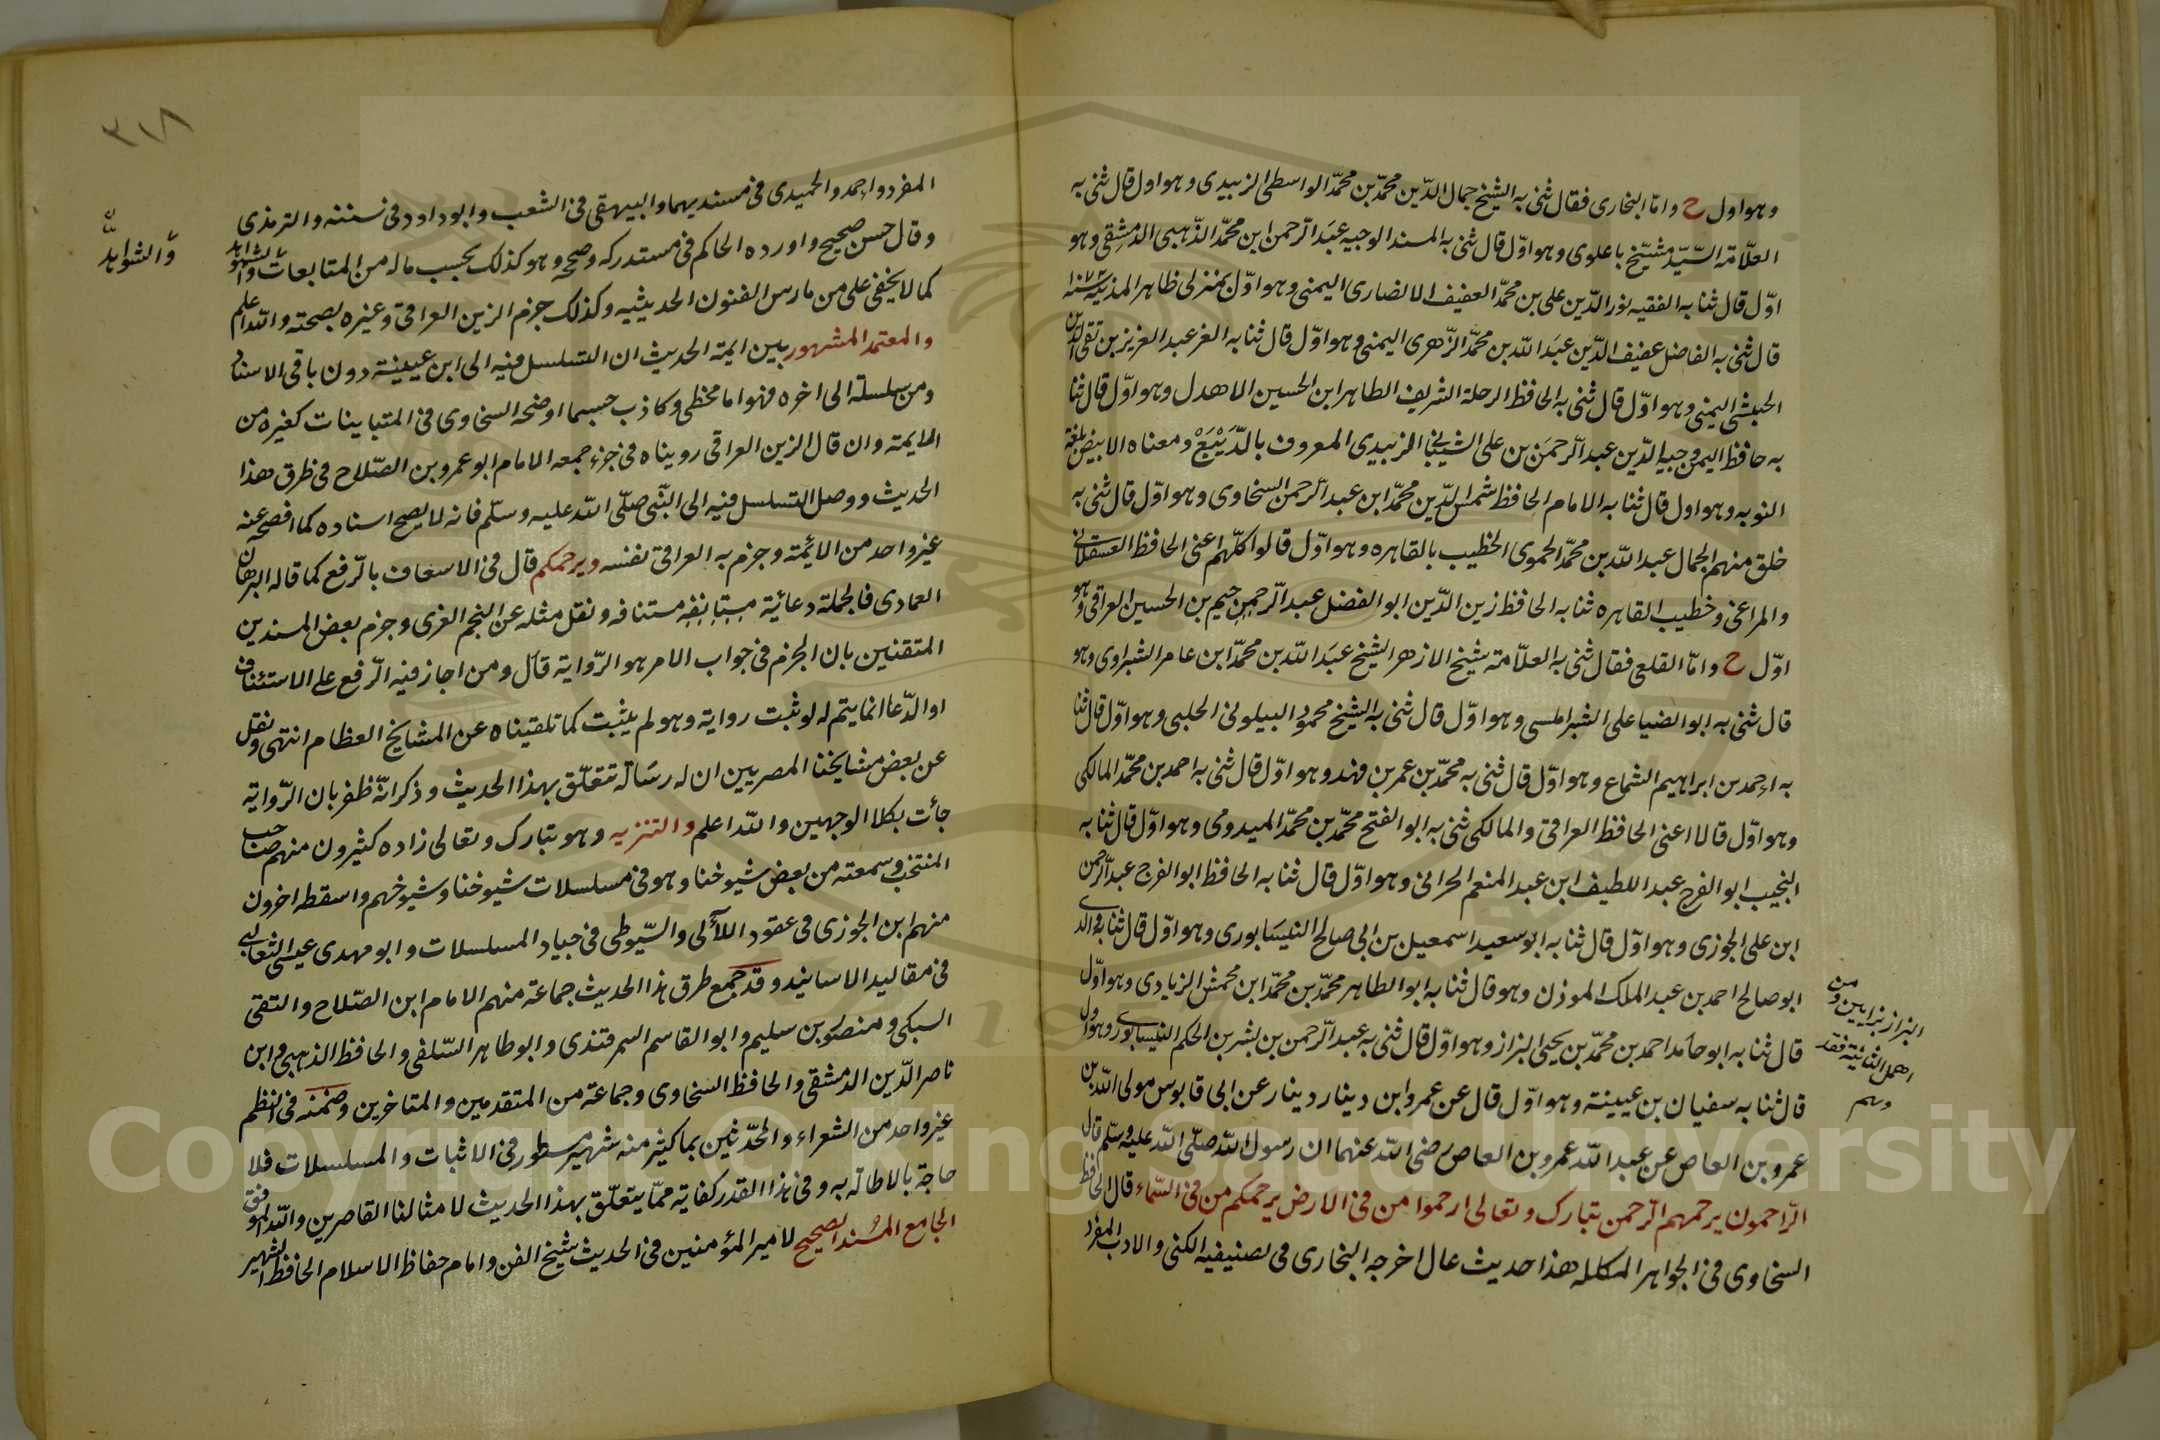 وهو اول ح واما البخارى فقال ثنى به الشيخ جمال الدّين محمّد بن محمّد الواسطى الزبيدى وهو اول قال ثنى به
العلّامة السّيد مشيّخ باعلوى وهو اوّل قال ثنى به المسند الوجيه عبد الرّحمن ابن محمّد الذّهبى الدمشقى وهو
اوّل قال ثنا به الفقيه نور الدّين على بن محمّد العفيف الانصارى اليمنى وهو اوّل بمنزلى ظاهر المدينة سنة ١٠٧٢
قال ثنى به الفاضل عفيف الدّين عبد الله بن محمّد الزّهرى اليمنى وهو اوّل قال ثنا به العز عبد العزيز بن تقى الدين
الحبشى اليمنى وهو اوّل قال ثنى به الحافظ الرحلة الشريف الطاهر ابن الحسين الاهدل وهو اوّل قال ثنا
به حافظ اليمن وجيه الدّين عبد الرّحمن بن على الشيبانى الزبيدى المعروف بالدّيبَع ومعناه الابيض بلغة
النوبه وهو اول قال ثنا به الامام الحافظ شمس الدّين محمّد ابن عبد الرّحمن السخاوى وهو اوّل قال ثنى به
خلق منهم الجمال عبد الله بن محمّد الحموى الخطيب بالقاهره وهو اوّل قالوا كلّهم اعنى الحافظ العسقلانى
والمراغى وخطيب القاهره ثنا به الحافظ زين الدّين ابو الفضل عبد الرّحيم بن الحسين العراقى وهو
اوّل ح وامّا القلعى فقال ثنى به العلّامة شيخ الازهر الشيخ عبد الله بن محمّد ابن عامر الشبراوى وهو
قال ثنى به ابو الضيا على الشبراملسى وهو اوّل قال ثنى به الشيخ محمود البيلونى الحلبى وهو اوّل قال ثنا
به احمد بن ابراهيم الشماع وهو اوّل قال ثنى به محمّد بن عمر بن فهد وهو اوّل قال ثنى به احمد بن محمّد المالكى
وهو اوّل قالا اعنى الحافظ العراقى والمالكى ثنى به ابو الفتح محمّد بن محمّد الميدومى وهو اوّل قال ثنا به
النجيب ابو الفرج عبد اللطيف ابن عبد المنعم الحرانى وهو اوّل قال ثنا به الحافظ ابو الفرج عبد الرّحمن
ابن على الجوزى وهو اوّل قال ثنا به ابو سعيد اسمعيل بن ابى صالح النيسابورى وهو اوّل قال ثنا به والدى
ابو صالح احمد بن عبد الملك الموذن وهو قال ثنا به ابو الطاهر محمّد بن محمّد ابن محمش الزيادى وهو اوّل
قال ثنا به ابو حامد احمد بن محمّد بن يحيى البزاز وهو اوّل قال ثنى به عبد الرّحمن بن بشر بن الحكم النيسابورى وهو اول
قال ثنا به سفيان بن عيينة وهو اوّل قال عن عمرو ابن دينار دينار عن ابى قابوس مولى الله بن
عمرو بن العاص عن عبد الله عمرو بن العاص رضى الله عنهما ان رسول الله صلّى الله عليه وسلّم قال
الرّاحمون يرحمهم الرّحمن تبارك وتعالى ارحموا من فى الارض يرحمكم من فى السّماء قال الحافظ
السخاوى فى الجواهر المكلله هذا حديث عال اخرجه البخارى فى تصنيفيه الكنى والادب المفرد
البزاز بزايين ومن
اهمل الثانية فقد
وهم
٣١٨
المفرد واحمد والحميدى فى مسنديهما والبيهقى فى الشعب وابو داود فى سننه والترمذى
وقال حسن صحيح واورده الحاكم فى مستدركه وصحّحه وهو كذلك بحسب ماله من المتابعات والشواهد
كما لا يخفى على من مارس الفنون الحديثيه وكذلك جزم الزين العراقى وغيره بصحته والله اعلم
والمعتمد المشهور بين ايمة الحديث ان التسلسل فيه الى ابن عيينة دون باقى الاسناد
ومن سلسله الى اخره فهو اما مخطى وكاذب حسبما اوضحه السخاوى فى المتباينات كغيره من
الايمة وان قال الزين العراقى رويناه فى جزء جمعه الامام ابو عمرو بن الصّلاح فى طرق هذا
الحديث ووصل التسلسل فيه الى النّبى صلّى الله عليه وسلّم فانه لا يصح اسناده كما افصح عنه
غير واحد من الائمّة وجزم به العراقى نفسه ويرحمكم قال فى الاسعاف بالرّفع كما قاله البرهان
العمادى فالجملة دعائية مستانفه مستنافه ونقل مثله عن النجم الغزى وجزم بعض المسندين
المتقنين بان الجزم فى جواب الامر هو الرّواية قال ومن اجاز فيه الرّفع على الاستئناف
او الدّعا انما يتم له لو ثبت رواية وهو لم يثبت كما تلقيناه عن المشايخ العظام انتهى ونقل
عن بعض مشايخنا المصريين ان له رسالة تتعلّق بهذا الحديث وذكر انّه ظفر بان الرّواية
جأت بكلا الوجهين والله اعلم والتنزيه وهو تبارك وتعالى زاده كثيرون منهم صاحب
المنتخب وسمعته من بعض شيوخنا وهو فى مسلسلات شيوخنا وشيوخهم واسقطه اخرون
منهم ابن الجوزى فى عقود اللآلى والسّيوطى فى جياد المسلسلات وابو مهدى عيسى الثعالبى
فى مقاليد الاسانيد وقد جمع طرق هذا الحديث جماعة منهم الامام ابن الصّلاح والتقى
السبكى ومنصور بن سليم وابو القاسم السمرقندى وابو طاهر السّلفى والحافظ الذهبى وابن
ناصر الدّين الدمشقى والحافظ السخاوى وجماعة من المتقدمين والمتاخرين وضمنه فى النظم
غير واحد من الشعراء والمحّدثين بما كثير منه شهير مسطور فى الاثبات والمسلسلات فلا
حاجة بالاطالة به وفى هذا القدر كفاية ممّا يتعلّق بهذا الحديث لامثالنا القاصرين والله الموفق
الجامع المسند الصحيح لامير المؤمنين فى الحديث شيخ الفن وامام حفاظ الاسلام الحافظ الشهير
والشواهد
Copyright © King Saud University